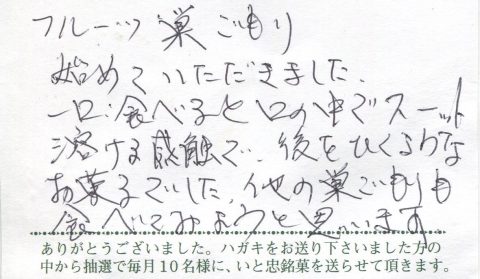 フルーツ巣ごもり
始めていただきました。
一口食べると口の中でスーット
溶ける感触で、後をひくような
お菓子でした。他の巣ごもりも
食べてみようと思います
ありがとうございました。ハガキをお送り下さいました方の
中から抽選で毎月10名様に、いと忠銘菓を送らせて頂きます。